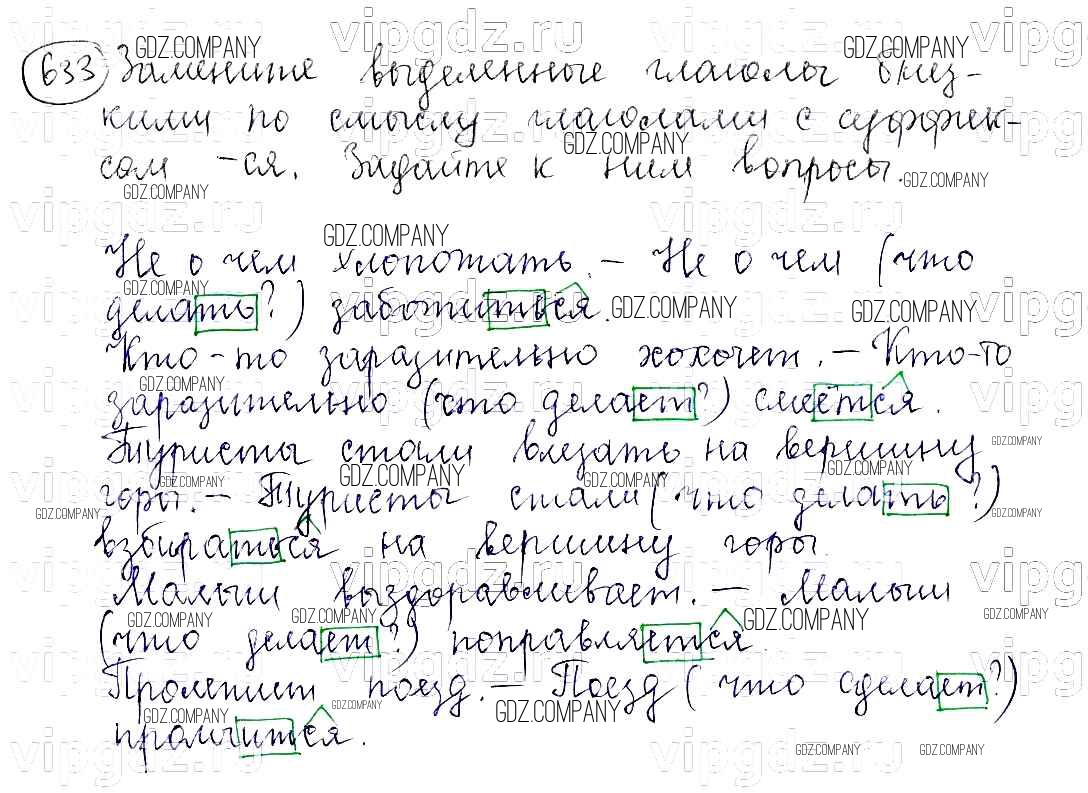 633 Замените выделенные глаголы близ-
кими по смыслу глаголами с суффик-
сом -ся. Задайте к ним вопросы.
Не о чем хлопотать. – Не о чем (что
делать?) заботиться.
Кто-то заразительно хохочет. – Кто-то
заразительно (что делает?) смеётся.
Туристы стали влезать на вершину
горы. – Туристы стали (что делать?)
взбираться на вершину горы.
Малыш выздоравливает. – Малыш
(что делает?) поправляется.
Пролетит поезд. – Поезд (что сделает?)
промчится.
GDZ.COMPANY
vipgdz.ru